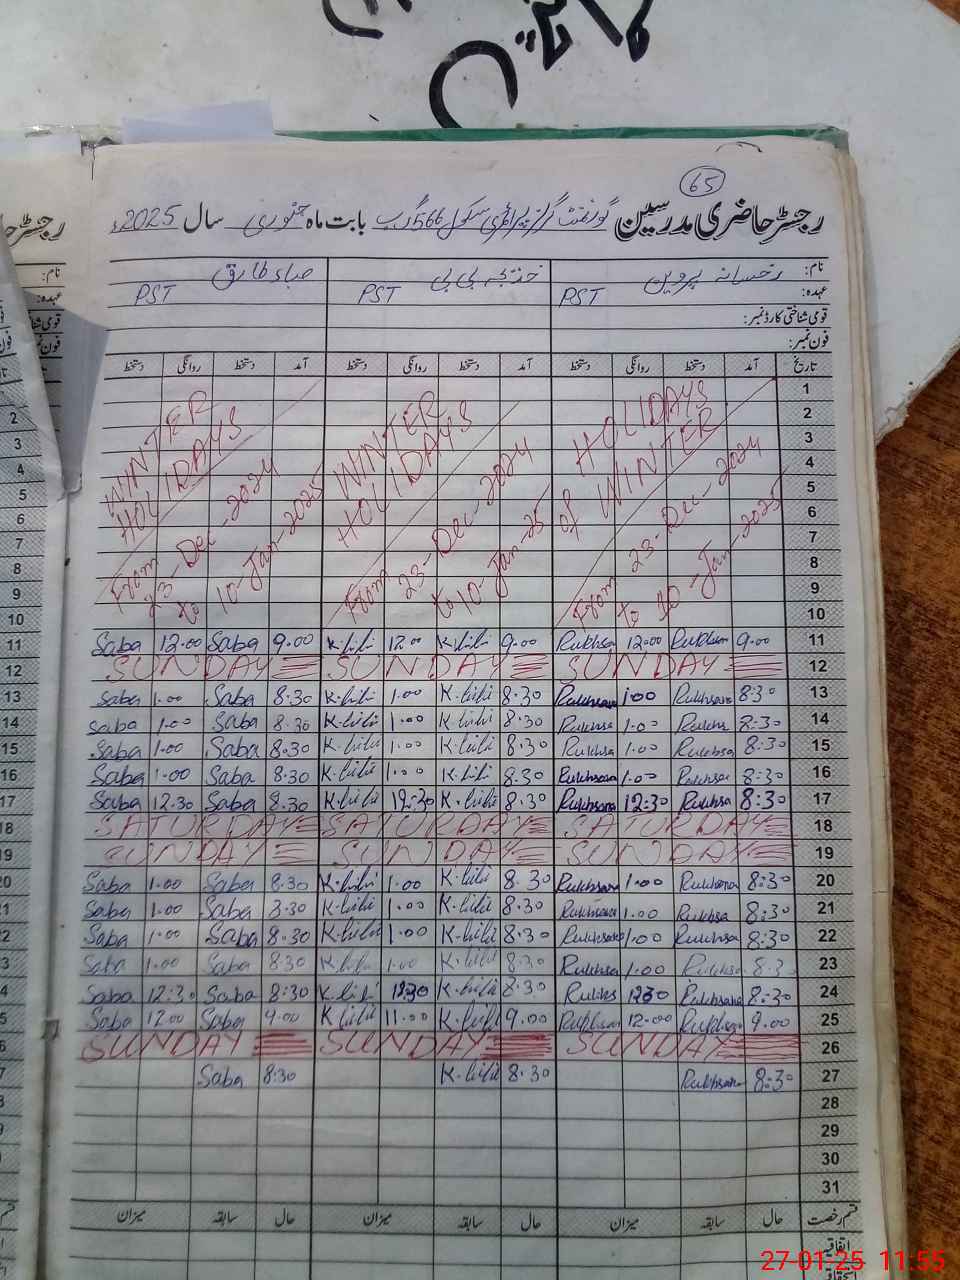 65
رجسٹر حاضری مدرسین گورنمنٹ گرلز پرائمری سکول 566 گ ب بابت ماہ جنوری سال 2025ء
نام: رخسانہ پروین خدیجہ بی بی صباء طارق
عہدہ: PST PST PST
قومی شناختی کارڈ نمبر:
فون نمبر:
تاریخ آمد دستخط روانگی دستخط آمد دستخط روانگی دستخط آمد دستخط روانگی دستخط
WINTER HOLIDAYS From 23-Dec-2024 to 10-Jan-2025
WINTER HOLIDAYS From 23-Dec-2024 to 10-Jan-25
HOLIDAYS of WINTER From 23-Dec-2024 to 10-Jan-2025
1
2
3
4
5
6
7
8
9
10
Saba 12.00 Saba 9.00 K-bibi 12.00 K-bibi 9.00 Rukhsan 12.00 Rukhsan 9.00 11
SUNDAY SUNDAY SUNDAY 12
Saba 1.00 Saba 8.30 K-bibi 1.00 K-bibi 8.30 Rukhsana 1.00 Rukhsana 8:30 13
Saba 1.00 Saba 8.30 K-bibi 1.00 K-bibi 8.30 Rukhsa 1.00 Rukhs 8:30 14
Saba 1.00 Saba 8.30 K-bibi 1.00 K-bibi 8.30 Rukhsa 1.00 Rukhsa 8:30 15
Saba 1.00 Saba 8.30 K-bibi 1.00 K-bibi 8.30 Rukhsana 1.00 Rukhsa 8:30 16
Saba 12.30 Saba 8.30 K-bibi 12:30 K-bibi 8.30 Rukhsana 12:30 Rukhsa 8:30 17
SATURDAY SATURDAY SATURDAY 18
SUNDAY SUNDAY SUNDAY 19
Saba 1.00 Saba 8.30 K-bibi 1.00 K-bibi 8.30 Rukhsana 1.00 Rukhsana 8:30 20
Saba 1.00 Saba 8.30 K-bibi 1.00 K-bibi 8.30 Rukhsana 1.00 Rukhsa 8:30 21
Saba 1.00 Saba 8.30 K-bibi 1.00 K-bibi 8.30 Rukhsana 1.00 Rukhsa 8:30 22
Saba 1.00 Saba 8.30 K-bibi 1.00 K-bibi 8.30 Rukhsa 1.00 Rukhsa 8:3 23
Saba 12:30 Saba 8:30 K-bibi 12:30 K-bibi 8.30 Rukhs 1230 Rukhsana 8:30 24
Saba 12.00 Saba 9.00 K bibi 11.00 K-bibi 9.00 Rukhsan 12.00 Rukhsan 9.00 25
SUNDAY SUNDAY SUNDAY 26
Saba 8:30 K-bibi 8.30 Rukhsana 8:30 27
28
29
30
31
قسم رخصت حال سابقہ میزان حال سابقہ میزان حال سابقہ میزان
اتفاقیہ
27-01-25 11:55